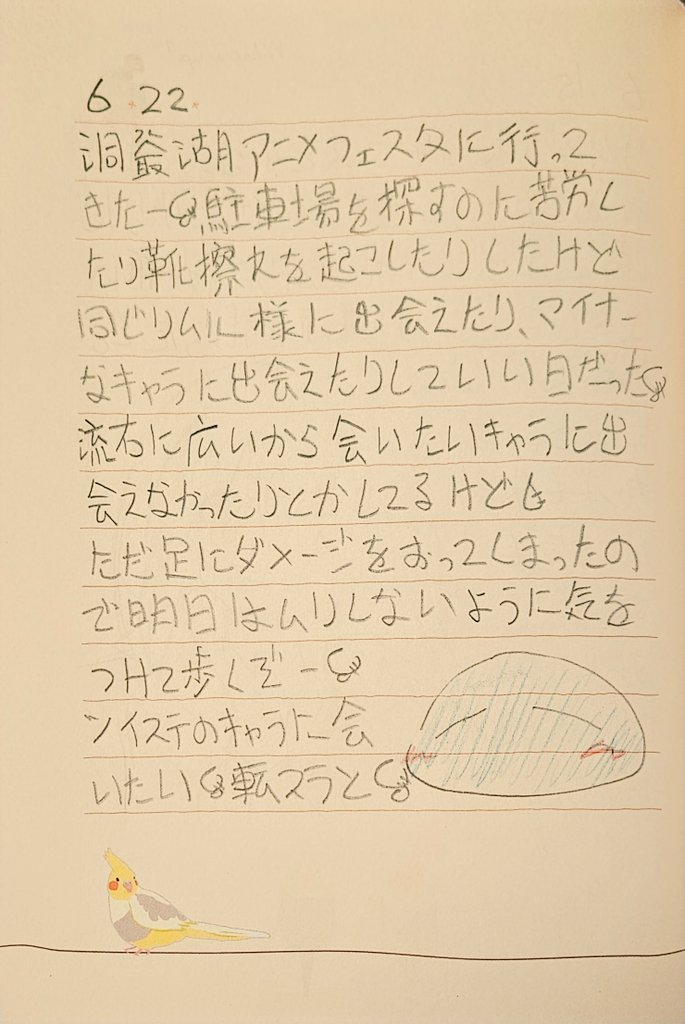 6.22.
洞爺湖アニメフェスタに行って
きたー駐車場を探すのに苦労し
たり靴擦れを起こしたりしたけど
同じリムル様に出会えたり、マイナー
なキャラに出会えたりしていい日だった
流石に広いから会いたいキャラに出
会えなかったりとかしてるけども
ただ足にダメージをおってしまったの
で明日はムリしないように気を
つけて歩くぞー
ツイステのキャラに会
いたい転スラと